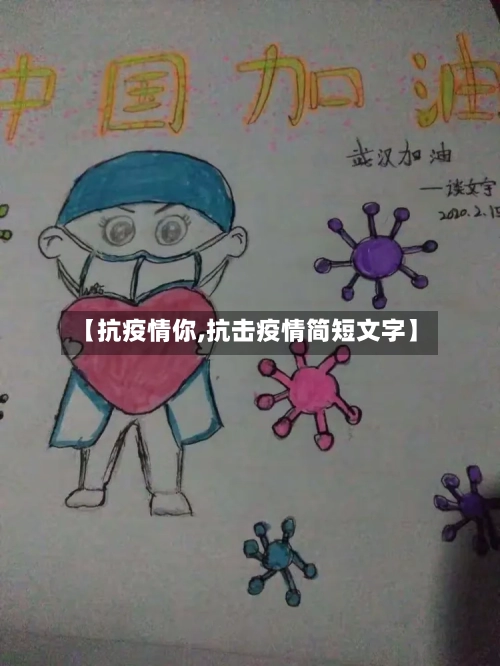 中国加油
武汉加油
—谈文宇
2020.2.15
【抗疫情你,抗击疫情简短文字】